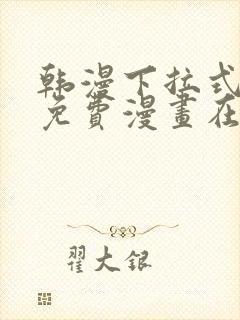 韩漫下拉式
免費漫畫在
翟大银